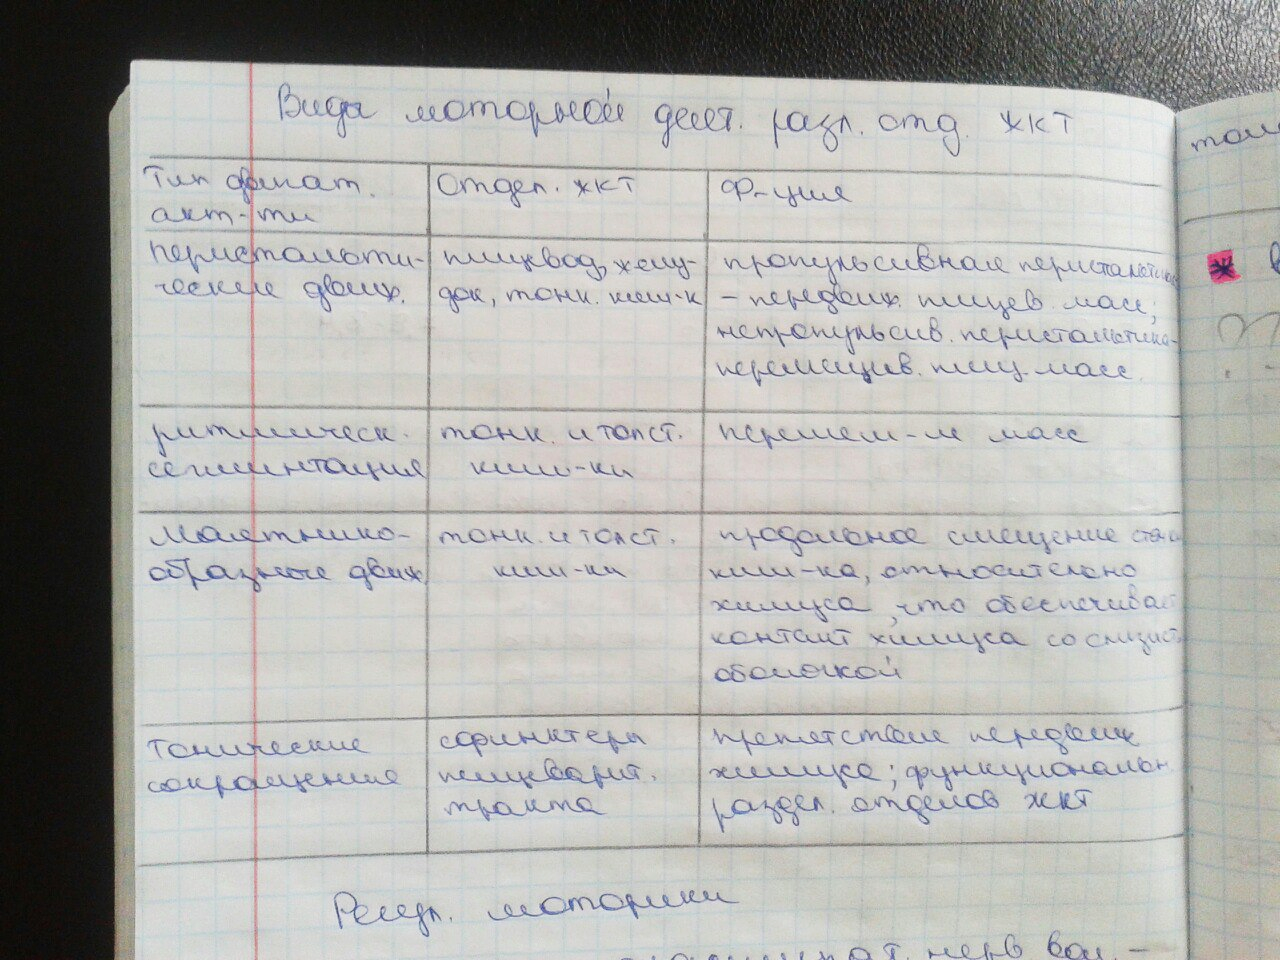 Виды моторной деят. разл. отд. ЖКТ
Тип двигат.
акт-ти
Отдел. ЖКТ
Ф-ция
перистальти-
ческие движ.
пищевод, желу-
док, тонк. киш-к
пропульсивная перистальтика
- передвиж. пищев. масс;
непропульсив. перистальтика-
перемешив. пищ. масс.
ритмическ.
сегментация
тонк. и толст.
киш-ки
перемеш-е масс
Маятнико-
образные движ.
тонк. и толст.
киш-ки
продольное смещение
киш-ка, относительно
химуса, что обеспечивает
контакт химуса со слизист.
оболочкой
Тонические
сокращения
сфинктеры
пищеварит.
тракта
препятствие передвиж
химуса; функциональн.
раздел. отделов ЖКТ
Регул. моторики
нерв вол. -